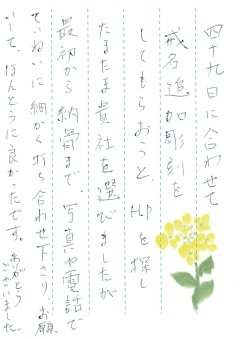 四十九日に合わせて
戒名追加彫刻を
してもらおうと、HPを探し
たまたま貴社を選びましたが
最初から納骨まで、写真や電話で
ていねいに細かく打ち合わせ下さり、お願
いして、ほんとうに良かったです。ありがとう
ございました。